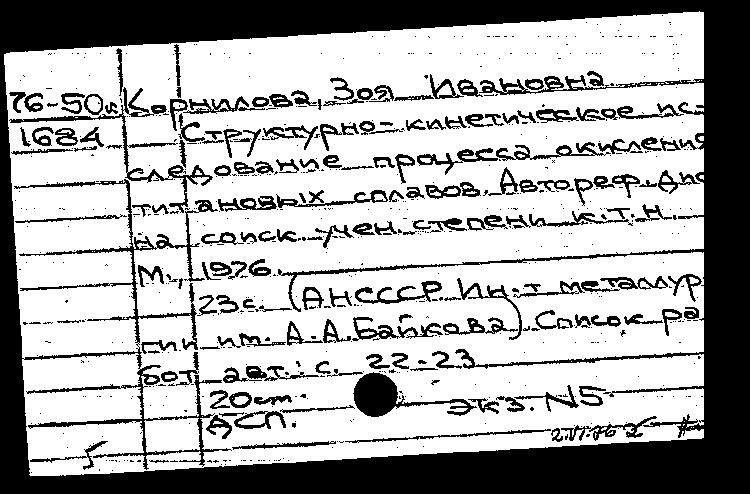 76-50к Корнилова, Зоя Ивановна
1684 Структурно-кинетическое ис-
следование процесса окисления
титановых сплавов. Автореф. Дис
на соиск. учен. степени к.т.н.
М., 1976.
23с. (АНСССР. Ин-т металлур
гии им. А.А.Байкова) Список ра
бот авт.: с. 22-23
20cm.
ДСП. Экз. N5
2.VI.76